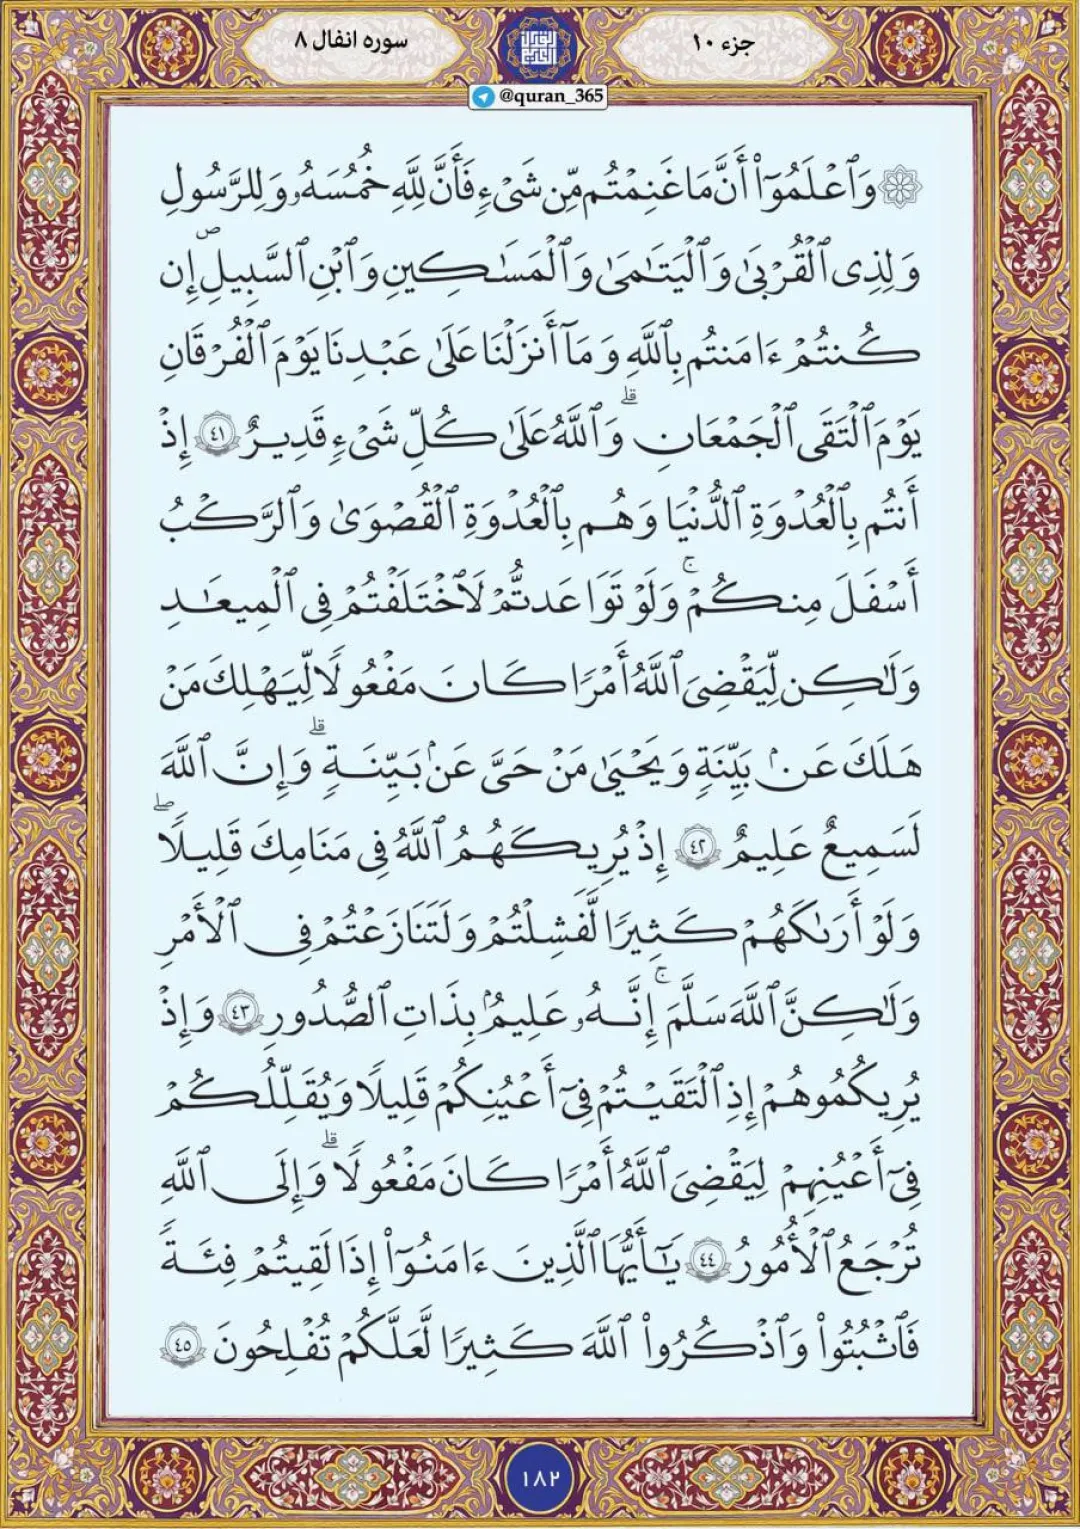 جزء ۱۰
سوره انفال ۸
@quran_365
۞ وَٱعۡلَمُوٓاْ أَنَّمَا غَنِمۡتُم مِّن شَيۡءٖ فَأَنَّ لِلَّهِ خُمُسَهُۥ وَلِلرَّسُولِ
وَلِذِي ٱلۡقُرۡبَىٰ وَٱلۡيَتَٰمَىٰ وَٱلۡمَسَٰكِينِ وَٱبۡنِ ٱلسَّبِيلِ ص إِن
كُنتُمۡ ءَامَنتُم بِٱللَّهِ وَمَآ أَنزَلۡنَا عَلَىٰ عَبۡدِنَا يَوۡمَ ٱلۡفُرۡقَانِ
يَوۡمَ ٱلۡتَقَى ٱلۡجَمۡعَانِۗ وَٱللَّهُ عَلَىٰ كُلِّ شَيۡءٖ قَدِيرٌ ٤١ إِذۡ
أَنتُم بِٱلۡعُدۡوَةِ ٱلدُّنۡيَا وَهُم بِٱلۡعُدۡوَةِ ٱلۡقُصۡوَىٰ وَٱلرَّكۡبُ
أَسۡفَلَ مِنكُمۡۚ وَلَوۡ تَوَاعَدتُّمۡ لَٱخۡتَلَفۡتُمۡ فِي ٱلۡمِيعَٰدِ
وَلَٰكِن لِّيَقۡضِيَ ٱللَّهُ أَمۡرٗا كَانَ مَفۡعُولٗا لِّيَهۡلِكَ مَنۡ
هَلَكَ عَنۢ بَيِّنَةٖ وَيَحۡيَىٰ مَنۡ حَيَّ عَنۢ بَيِّنَةٖۗ وَإِنَّ ٱللَّهَ
لَسَمِيعٌ عَلِيمٌ ٤٢ إِذۡ يُرِيكَهُمُ ٱللَّهُ فِي مَنَامِكَ قَلِيلٗاۖ
وَلَوۡ أَرَىٰكَهُمۡ كَثِيرٗا لَّفَشِلۡتُمۡ وَلَتَنَٰزَعۡتُمۡ فِي ٱلۡأَمۡرِ
وَلَٰكِنَّ ٱللَّهَ سَلَّمَۚ إِنَّهُۥ عَلِيمُۢ بِذَاتِ ٱلصُّدُورِ ٤٣ وَإِذۡ
يُرِيكُمُوهُمۡ إِذِ ٱلۡتَقَيۡتُمۡ فِيٓ أَعۡيُنِكُمۡ قَلِيلٗا وَيُقَلِّلُكُمۡ
فِيٓ أَعۡيُنِهِمۡ لِيَقۡضِيَ ٱللَّهُ أَمۡرٗا كَانَ مَفۡعُولٗاۗ وَإِلَى ٱللَّهِ
تُرۡجَعُ ٱلۡأُمُورُ ٤٤ يَٰٓأَيُّهَا ٱلَّذِينَ ءَامَنُوٓاْ إِذَا لَقِيتُمۡ فِئَةٗ
فَٱثۡبُتُواْ وَٱذۡكُرُواْ ٱللَّهَ كَثِيرٗا لَّعَلَّكُمۡ تُفۡلِحُونَ ٤٥
۱۸۲